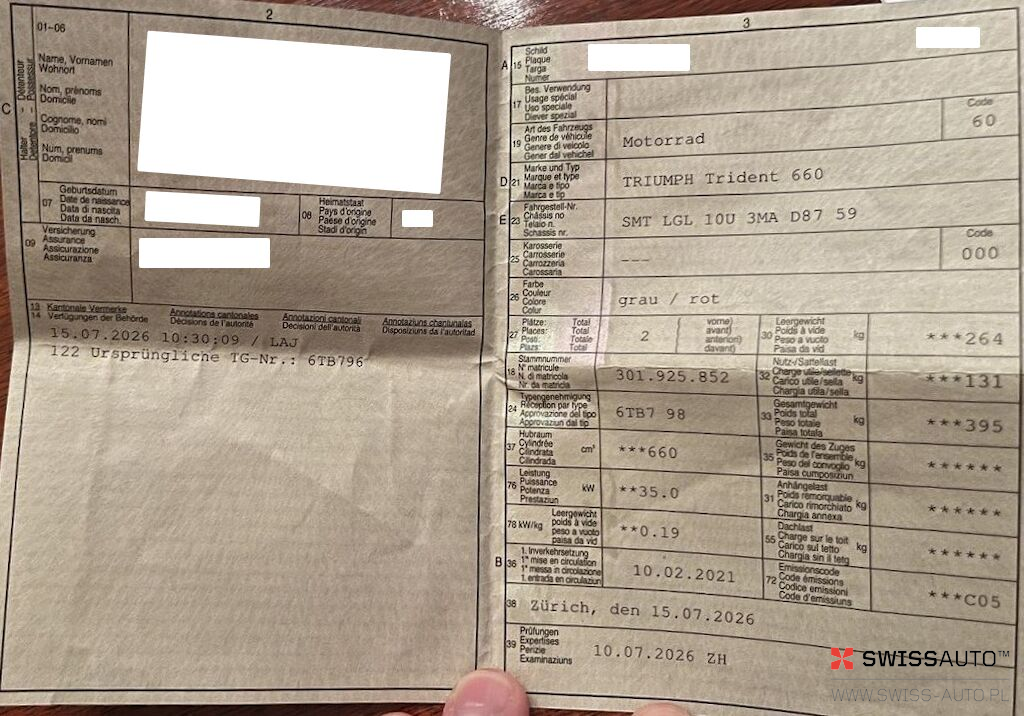 2
01-06
Name, Vornamen
Wohnort
Nom, prénoms
Domicile
Cognome, nomi
Domicilio
Num, prenums
Domicil
C
Halter Détenteur
Detentore Possessur
07
Geburtsdatum
Date de naissance
Data di nascita
Data da nasch.
08
Heimatstaat
Pays d'origine
Paese d'origine
Stadi d'origin
09
Versicherung
Assurance
Assicurazione
Assicuranza
13 Kantonale Vermerke Annotations cantonales Annotazioni cantonali Annotaziuns chantunalas
14 Verfügungen der Behörde Décisions de l'autorité Decisioni dell'autorità Disposiziuns da l'autoritad
15.07.2026 10:30:09 / LAJ
122 Ursprüngliche TG-Nr.: 6TB796
3
A 15
Schild
Plaque
Targa
Numer
17
Bes. Verwendung
Usage spécial
Uso speciale
Diever spezial
19
Art des Fahrzeugs
Genre de véhicule
Genere di veicolo
Gener dal vehichel
Motorrad
Code
60
D 21
Marke und Typ
Marque et type
Marca e tipo
Marca e tip
TRIUMPH Trident 660
E 23
Fahrgestell-Nr.
Châssis no
Telaio n.
Schassis nr.
SMT LGL 10U 3MA D87 59
25
Karosserie
Carrosserie
Carrozzeria
Carossaria
---
Code
000
26
Farbe
Couleur
Colore
Colur
grau / rot
27
Plätze: Total
Places: Total
Posti: Totale
Plazs: Total
2
vorne)
avant)
anteriori)
davant)
30
Leergewicht
Poids à vide
Peso a vuoto
Paisa da vid
kg
***264
18
Stammnummer
N° matricule
N. di matricola
Nr. da matricla
301.925.852
32
Nutz-/Sattellast
Charge utile/sellette
Carico utile/sella
Chargia utila/sella
kg
***131
24
Typengenehmigung
Réception par type
Approvazione del tipo
Approvaziun dal tip
6TB7 98
33
Gesamtgewicht
Poids total
Peso totale
Paisa totala
kg
***395
37
Hubraum
Cylindrée
Cilindrata
Cilindrada
cm³
***660
35
Gewicht des Zuges
Poids de l'ensemble
Peso del convoglio
Paisa cumposiziun
kg
******
76
Leistung
Puissance
Potenza
Prestaziun
kW
**35.0
31
Anhängelast
Poids remorquable
Carico rimorchiato
Chargia annexa
kg
******
78 kW/kg
Leergewicht
poids à vide
peso a vuoto
paisa da vid
**0.19
55
Dachlast
Charge sur le toit
Carico sul tetto
Chargia sin il tetg
kg
******
B 36
1. Inverkehrsetzung
1re mise en circulation
1a messa in circolazione
1. entrada en circulaziun
10.02.2021
72
Emissionscode
Code émissions
Codice emissioni
Code d'emissiuns
***C05
38 Zürich, den 15.07.2026
39
Prüfungen
Expertises
Perizie
Examinaziuns
10.07.2026 ZH
SWISSAUTO™
WWW.SWISS-AUTO.PL